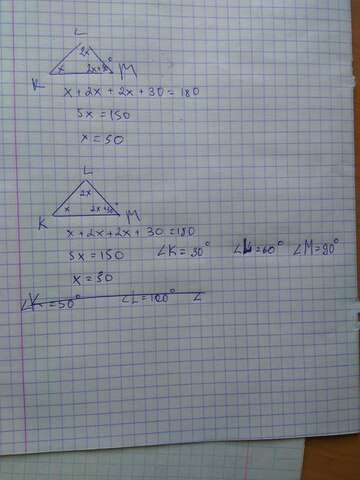 L
2x
x 2x+30°
K M
x + 2x + 2x + 30 = 180
5x = 150
x = 50
L
2x
x 2x+30°
K M
x + 2x + 2x + 30 = 180
5x = 150 ∠K = 30° ∠L = 60° ∠M = 90°
x = 30
∠K = 50° ∠L = 100° ∠